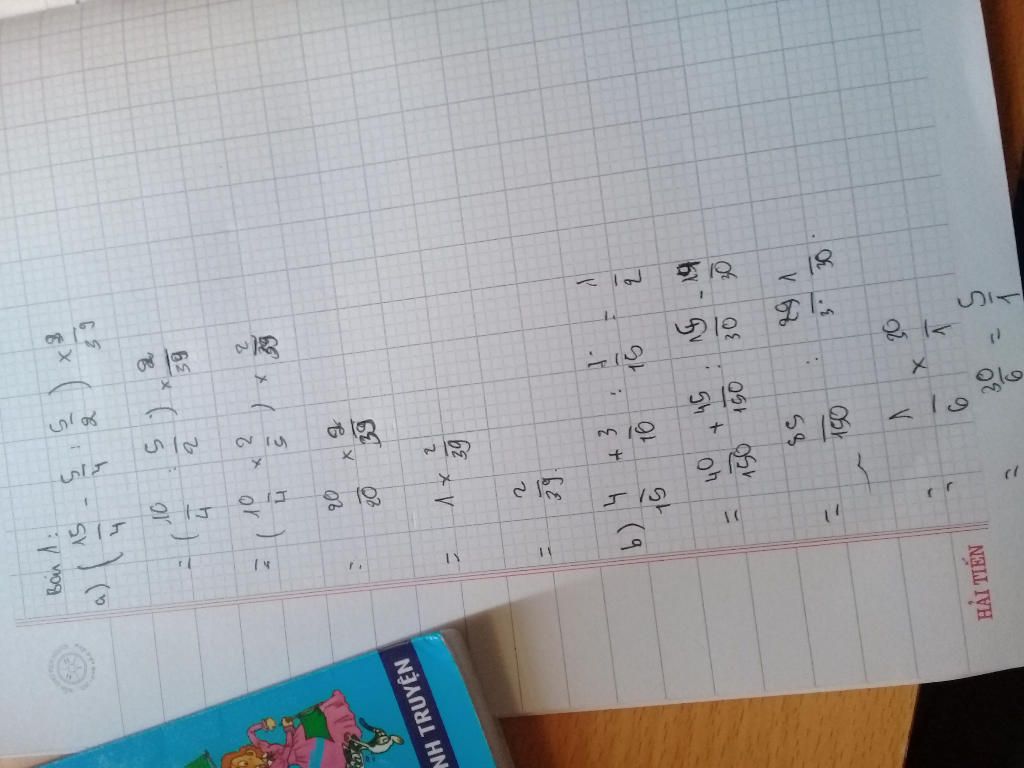 Bài 1:
a) ( 15/4 - 5/4 : 5/2 ) x 2/39
= ( 10/4 : 5/2 ) x 2/39
= ( 10/4 x 2/5 ) x 2/39
= 20/20 x 2/39
= 1 x 2/39
= 2/39.
b) 4/15 + 3/10 : 7/15 - 1/2
= 40/150 + 45/150 : 15/30
= 85/150 :
= 1/6 x 30/1
= 30/6 = 5/1
HẢI TIẾN
NH TRUYỆN